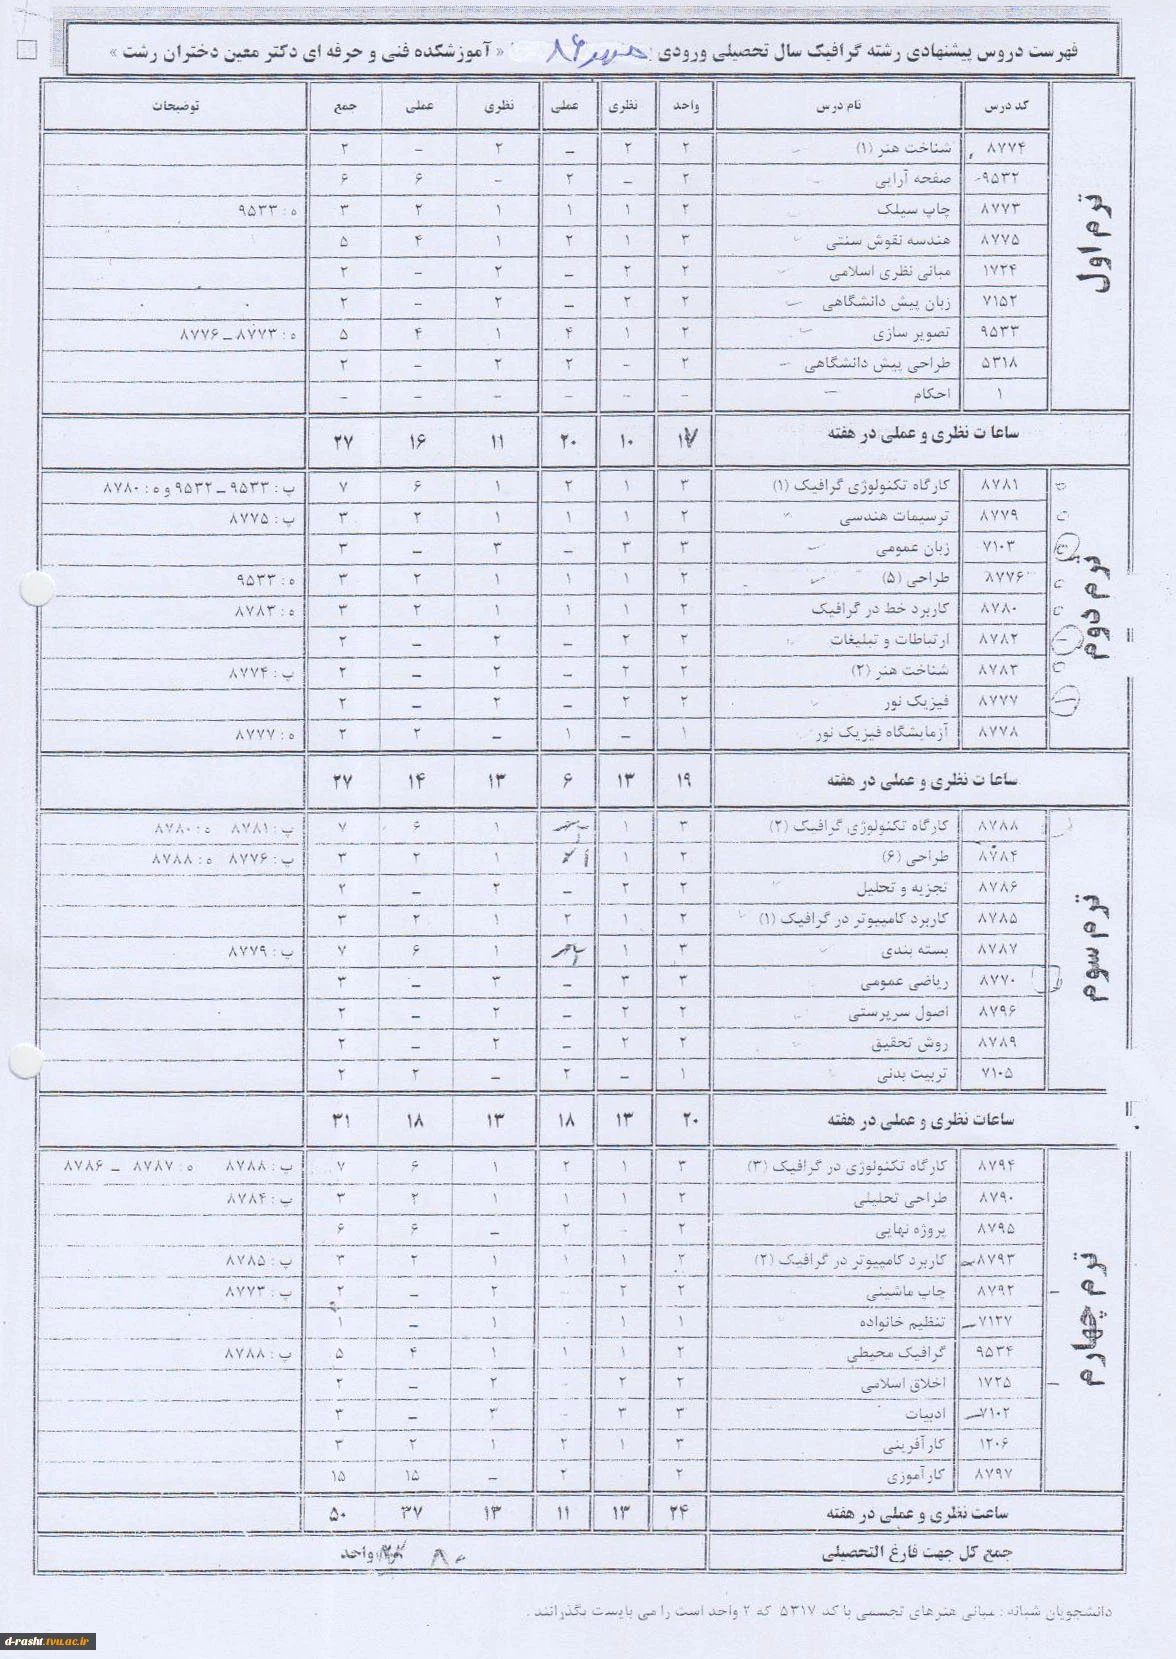 فهرست دروس پیشنهادی رشته گرافیک سال تحصیلی ورودی ۸۶ « آموزشکده فنی و حرفه ای دکتر معین دختران رشت »
کد درس نام درس واحد نظری عملی نظری عملی جمع توضیحات
ترم اول
۸۷۷۴ شناخت هنر (۱) ۲ ۲ – ۲ – ۲
۹۵۳۲ صفحه آرایی ۲ – ۲ – ۶ ۶
۸۷۷۳ چاپ سیلک ۲ ۱ ۱ ۱ ۲ ۳ ه : ۹۵۳۳
۸۷۷۵ هندسه نقوش سنتی ۳ ۱ ۲ ۱ ۴ ۵
۱۷۲۴ مبانی نظری اسلامی ۲ ۲ – ۲ – ۲
۷۱۵۲ زبان پیش دانشگاهی ۲ ۲ – ۲ – ۲
۹۵۳۳ تصویر سازی ۲ ۱ ۴ ۱ ۴ ۵ ه : ۸۷۷۳ – ۸۷۷۶
۵۳۱۸ طراحی پیش دانشگاهی ۲ – ۲ ۲ – ۲
۱ احکام – – – – – –
ساعات نظری و عملی در هفته ۱۷ ۱۰ ۲۰ ۱۱ ۱۶ ۲۷
ترم دوم
۸۷۸۱ کارگاه تکنولوژی گرافیک (۱) ۳ ۱ ۲ ۱ ۶ ۷ پ : ۹۵۳۳ – ۹۵۳۲ و ه : ۸۷۸۰
۸۷۷۹ ترسیمات هندسی ۲ ۱ ۱ ۱ ۲ ۳ پ : ۸۷۷۵
۷۱۰۳ زبان عمومی ۳ ۳ – ۳ – ۳
۸۷۷۶ طراحی (۵) ۲ ۱ ۱ ۱ ۲ ۳ ه : ۹۵۳۳
۸۷۸۰ کاربرد خط در گرافیک ۲ ۱ ۱ ۱ ۲ ۳ ه : ۸۷۸۳
۸۷۸۲ ارتباطات و تبلیغات ۲ ۲ – ۲ – ۲
۸۷۸۳ شناخت هنر (۲) ۲ ۲ – ۲ – ۲ پ : ۸۷۷۴
۸۷۷۷ فیزیک نور ۲ ۲ – ۲ – ۲
۸۷۷۸ آزمایشگاه فیزیک نور ۱ – ۱ – ۲ ۲ ه : ۸۷۷۷
ساعات نظری و عملی در هفته ۱۹ ۱۳ ۶ ۱۳ ۱۴ ۲۷
ترم سوم
۸۷۸۸ کارگاه تکنولوژی گرافیک (۲) ۳ ۱ ۱ ۶ ۷ پ : ۸۷۸۱ ه : ۸۷۸۰
۸۷۸۴ طراحی (۶) ۲ ۱ ۱ ۲ ۳ پ : ۸۷۷۶ ه : ۸۷۸۸
۸۷۸۶ تجزیه و تحلیل ۲ ۲ – ۲ – ۲
۸۷۸۵ کاربرد کامپیوتر در گرافیک (۱) ۲ ۱ ۲ ۱ ۲ ۳
۸۷۸۷ بسته بندی ۳ ۱ ۱ ۶ ۷ پ : ۸۷۷۹
۸۷۷۰ ریاضی عمومی ۳ ۳ – ۳ – ۳
۸۷۹۶ اصول سرپرستی ۲ ۲ – ۲ – ۲
۸۷۸۹ روش تحقیق ۲ ۲ – ۲ – ۲
۷۱۰۵ تربیت بدنی ۱ – ۲ – ۲ ۲
ساعات نظری و عملی در هفته ۲۰ ۱۳ ۱۸ ۱۳ ۱۸ ۳۱
ترم چهارم
۸۷۹۴ کارگاه تکنولوژی در گرافیک (۳) ۳ ۱ ۲ ۱ ۶ ۷ پ : ۸۷۸۸ ه : ۸۷۸۷ – ۸۷۸۶
۸۷۹۰ طراحی تحلیلی ۲ ۱ ۱ ۱ ۲ ۳ پ : ۸۷۸۴
۸۷۹۵ پروژه نهایی ۲ – ۲ – ۶ ۶
۸۷۹۳ کاربرد کامپیوتر در گرافیک (۲) ۲ ۱ ۱ ۱ ۲ ۳ پ : ۸۷۸۵
۸۷۹۲ چاپ ماشینی ۲ ۲ – ۲ – ۲ پ : ۸۷۷۳
۷۱۲۷ تنظیم خانواده ۱ ۱ ۱ – ۱
۹۵۳۴ گرافیک محیطی ۲ ۱ ۱ ۱ ۴ ۵ پ : ۸۷۸۸
۱۷۲۵ اخلاق اسلامی ۲ ۲ – ۲ – ۲
۷۱۰۲ ادبیات ۳ ۳ – ۳ – ۳
۱۲۰۶ کارآفرینی ۳ ۱ ۲ ۱ ۲ ۳
۸۷۹۷ کارآموزی ۲ ۲ – ۱۵ ۱۵
ساعت نظری و عملی در هفته ۲۴ ۱۳ ۱۱ ۱۳ ۳۷ ۵۰
جمع کل جهت فارغ التحصیلی ۸۰ واحد
دانشجویان شبانه : مبانی هنرهای تجسمی با کد ۵۳۱۷ که ۲ واحد است را می بایست بگذرانند .
d-rasht.tvu.ac.ir